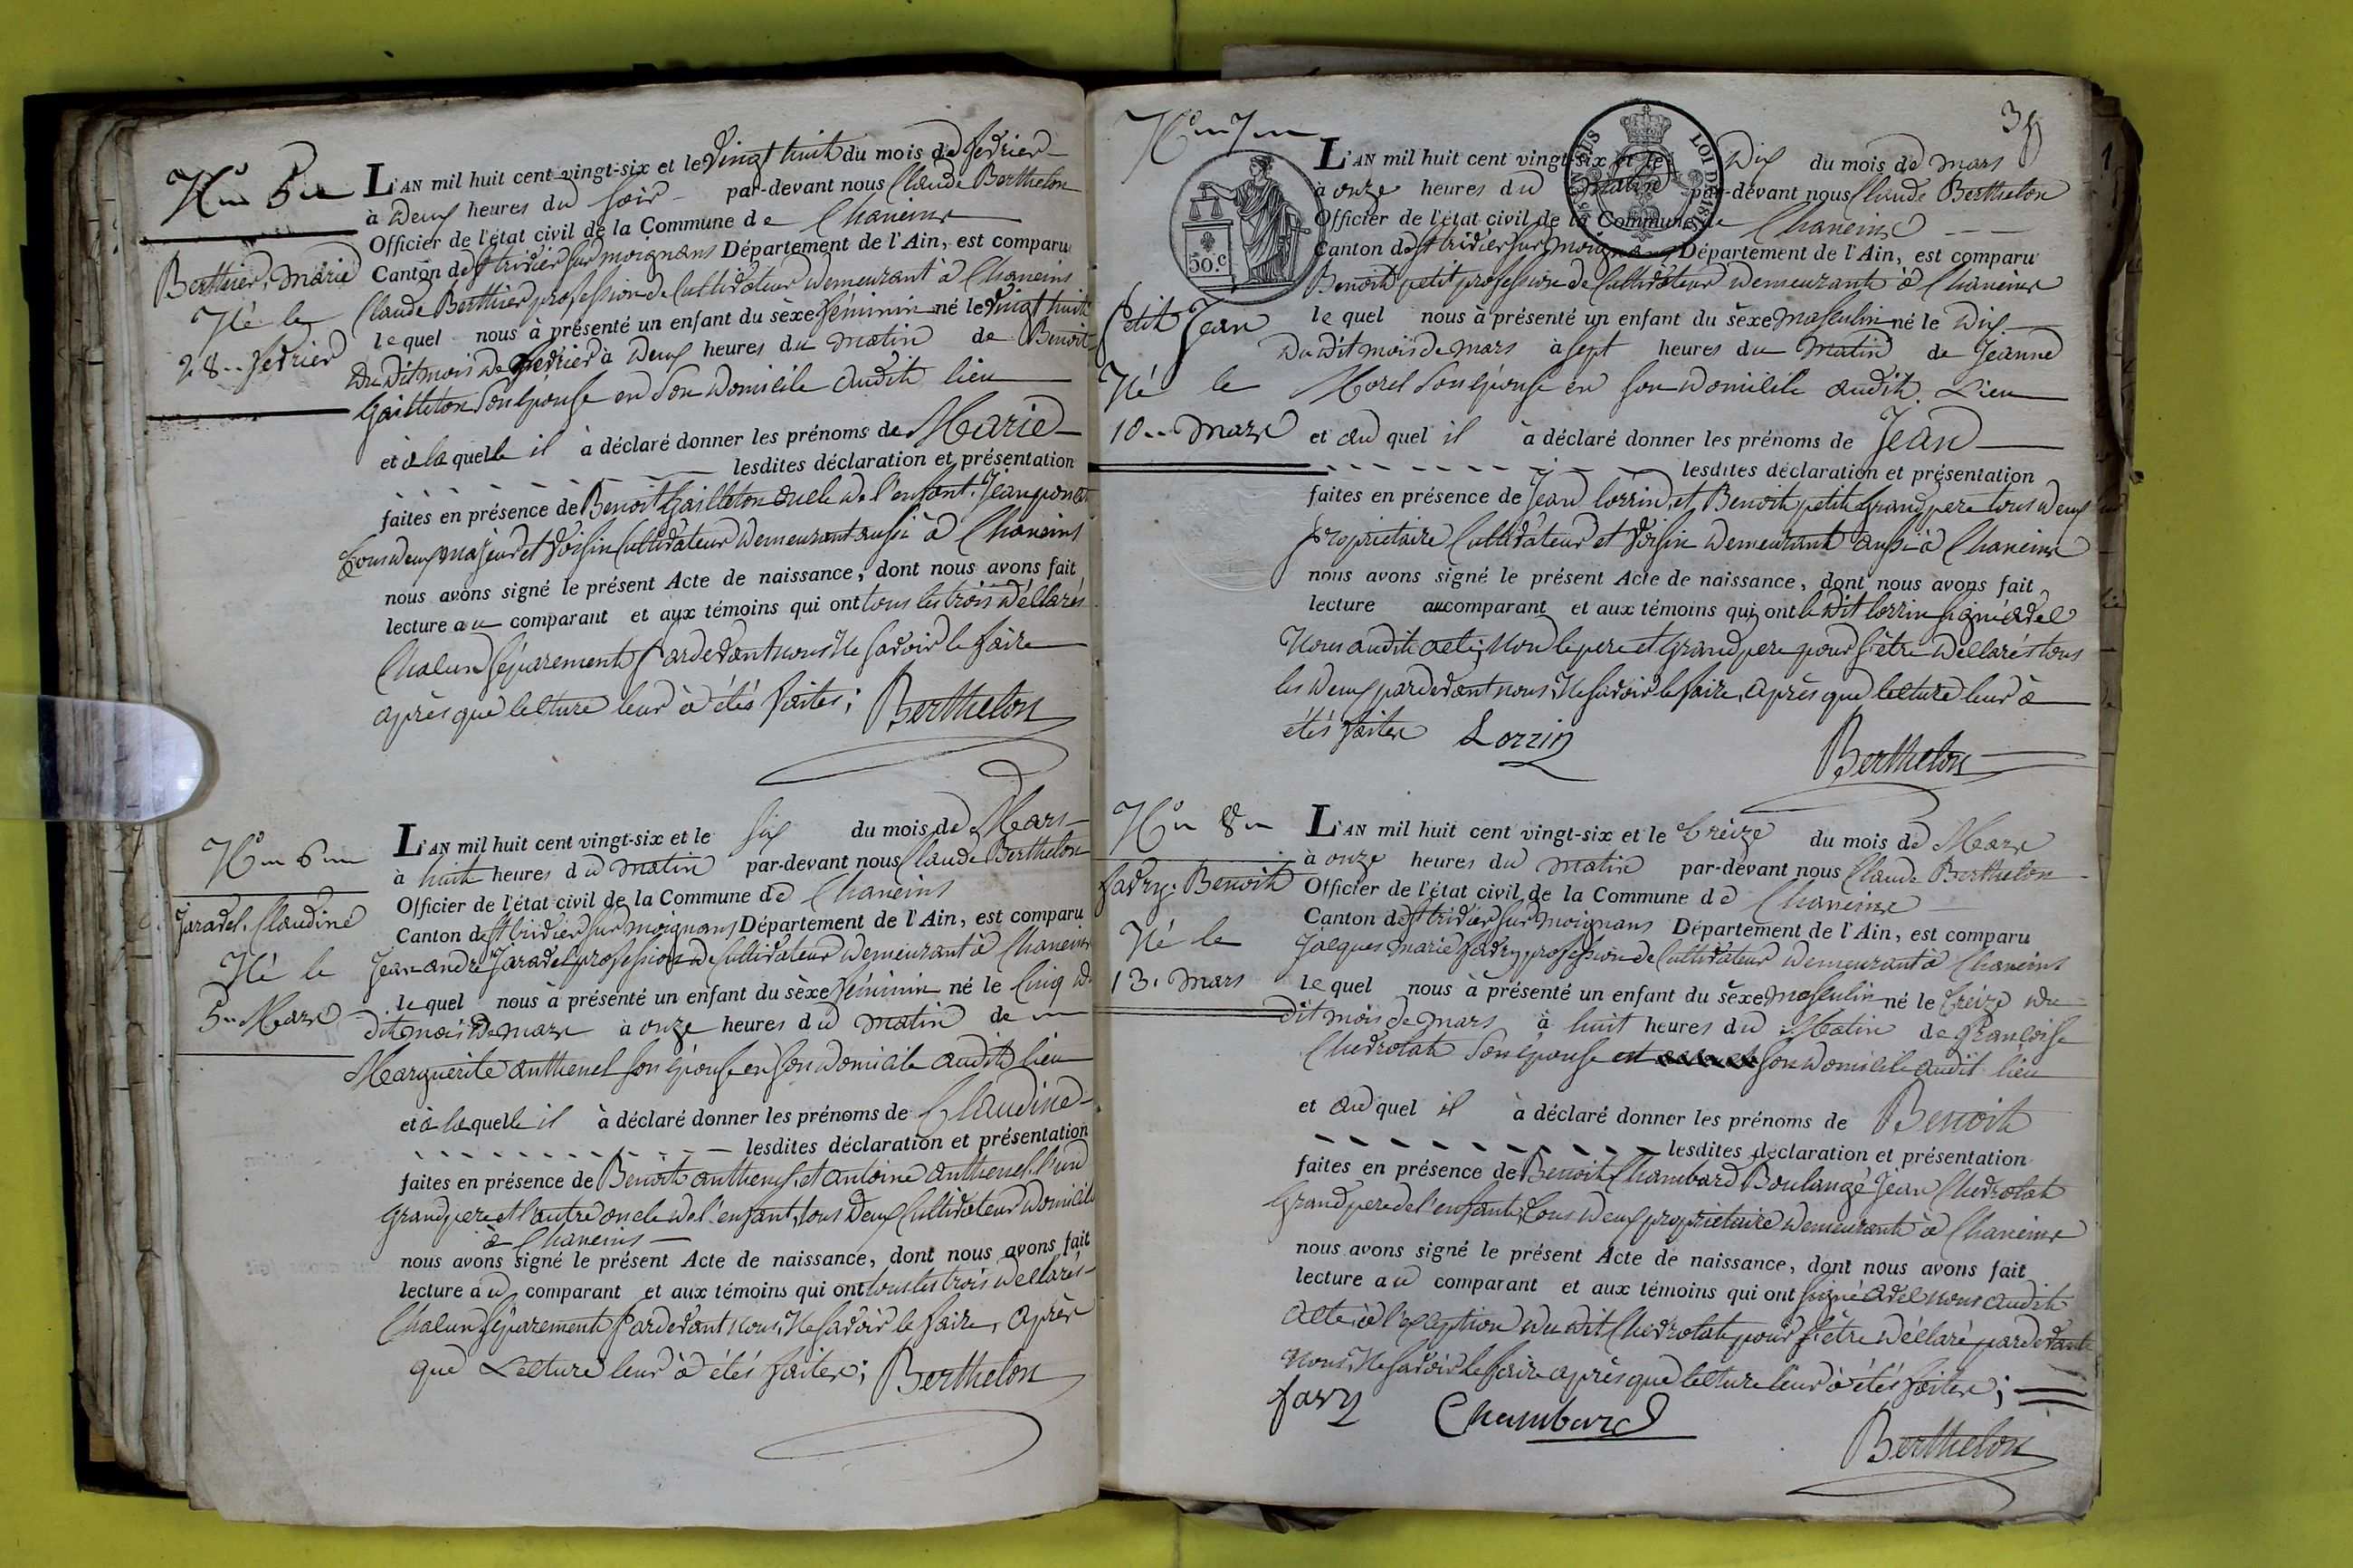 N° 5
Berthier, Marie
Né le
28 fevrier
L'AN mil huit cent vingt-six et le Vingt huit du mois de fevrier
à Deux heures du soir par-devant nous Claude Berthelon
Officier de l'état civil de la Commune de Chaneins
Canton de St trivier sur moignans Département de l'Ain, est comparu
Claude Berthier profession de Cultivateur demeurant à Chaneins
lequel nous à présenté un enfant du sèxe féminin né le vingt huit
du dit mois de fevrier à Deux heures du matin de Benoite
Gailleton son épouse en son domicile audit lieu
et à la quelle il à déclaré donner les prénoms de Marie
lesdites déclaration et présentation
faites en présence de Benoit Gailleton oncle de l'enfant. Jean
tous deux majeur et voisin Cultivateur demeurant aussi à Chaneins
nous avons signé le présent Acte de naissance, dont nous avons fait
lecture au comparant et aux témoins qui ont tous les trois déclarés
Chacun séparement pardevant nous Ne savoir le faire
après que lecture leur à étés faites; Berthelon
N° 6
Jaravel. Claudine
Né le
5 Mars
L'AN mil huit cent vingt-six et le six du mois de Mars
à huit heures du matin par-devant nous Claude Berthelon
Officier de l'état civil de la Commune de Chaneins
Canton de St trivier sur moignans Département de l'Ain, est comparu
Jean andré Jaravel profession de Cultivateur demeurant à Chaneins
lequel nous à présenté un enfant du sèxe féminin né le Cinq du
dit mois de mars à onze heures du matin de
Marguerite anthenel son épouse en son domicile audit lieu
et à laquelle il à déclaré donner les prénoms de Claudine
lesdites déclaration et présentation
faites en présence de Benoit et antoine anthenel l'un
grand pere et l'autre oncle de l'enfant, tous deux Cultivateur domicilié
à Chaneins
nous avons signé le présent Acte de naissance, dont nous avons fait
lecture au comparant et aux témoins qui ont tous les trois déclarés
Chacun séparement pardevant nous, Ne savoir le faire, après
que Lecture leur à étés faites; Berthelon
38
N° 7
50.C
LOI DE
Petit Jean
Né le
10 Mars
L'AN mil huit cent vingt-six et le Dix du mois de mars
à onze heures du matin par-devant nous Claude Berthelon
Officier de l'état civil de la Commune de Chaneins
Canton de St trivier sur moignans Département de l'Ain, est comparu
Benoit petit profession de Cultivateur demeurant à Chaneins
lequel nous à présenté un enfant du sèxe masculin né le Dix
du dit mois de mars à sept heures du matin de Jeanne
Morel son épouse en son domicile audit Lieu
et au quel il à déclaré donner les prénoms de Jean
lesdites déclaration et présentation
faites en présence de Jean lorrin, et Benoit petit grand pere tous deux
proprietaire Cultivateur et voisin demeurant aussi à Chaneins
nous avons signé le présent Acte de naissance, dont nous avons fait
lecture au comparant et aux témoins qui ont le dit lorrin signé avec
Nous audit acte; Non le pere et grand pere pour s'être déclarés tous
les deux pardevant nous, Ne savoir le faire, après que lecture leur à
étés faites Lorrin
Berthelon
N° 8
favry. Benoit
Né le
13. mars
L'AN mil huit cent vingt-six et le treize du mois de Mars
à onze heures du matin par-devant nous Claude Berthelon
Officier de l'état civil de la Commune de Chaneins
Canton de St trivier sur moignans Département de l'Ain, est comparu
Jacques marie favry profession de Cultivateur demeurant à Chaneins
lequel nous à présenté un enfant du sèxe masculin né le treize du
dit mois de mars à huit heures du Matin de françoise
Chevrolat son épouse son domicile audit lieu
et au quel il à déclaré donner les prénoms de Benoit
lesdites déclaration et présentation
faites en présence de Benoit Chambard Boulangé Jean Chevrolat
Grand pere de l'enfant, tous deux proprietaire demeurant à Chaneins
nous avons signé le présent Acte de naissance, dont nous avons fait
lecture au comparant et aux témoins qui ont signé avec nous audit
acte; à l'exception du dit Chevrolat pour s'être déclaré pardevant
nous, Ne savoir le faire après que lecture leur à étés faites;
favry Chambard
Berthelon